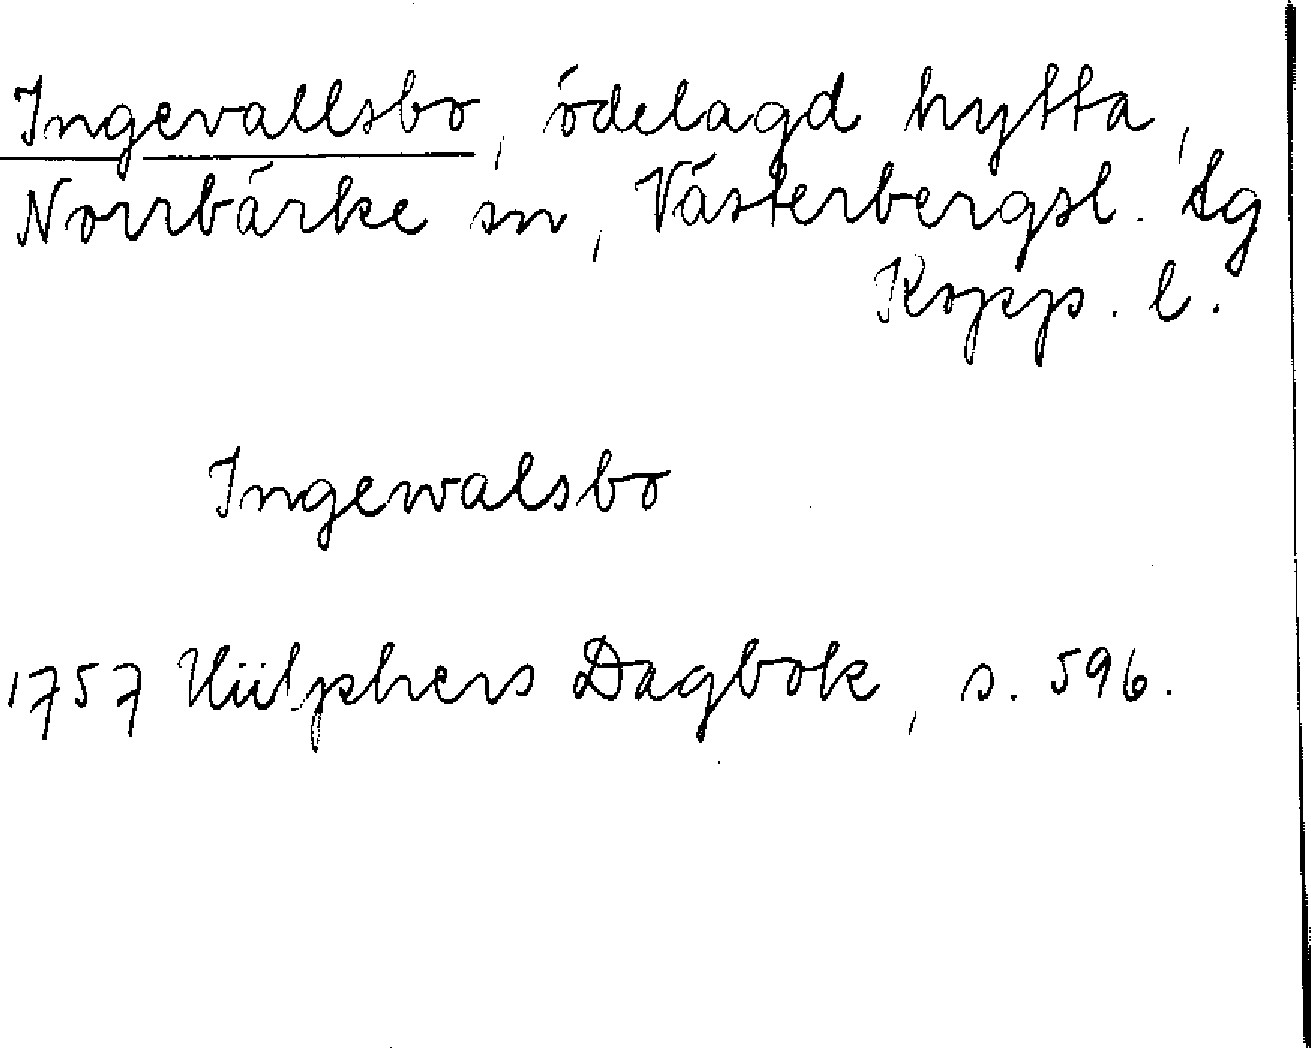 Ingevallsbo, ödelagd hytta,
Norrbärke sn, Västerbergsl. dg
Kopp. l.
Ingewalsbo
1757 Hülphers Dagbok, s. 596.